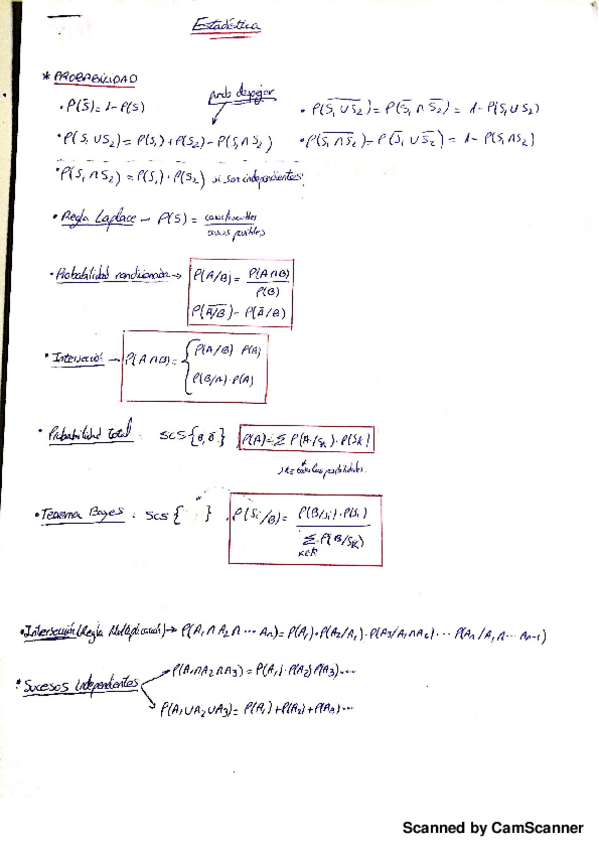 Estadística
* PROBABILIDAD
puedo despejar
• P(S̅) = 1 - P(S)
• P(S₁ ∪ S₂) = P(S₁) + P(S₂) - P(S₁ ∩ S₂)
• P(S̅₁̅ ̅∪̅ ̅S̅₂̅) = P(S̅₁ ∩ S̅₂) = 1 - P(S₁ ∪ S₂)
• P(S̅₁̅ ̅∩̅ ̅S̅₂̅) - P(S̅₁ ∪ S̅₂) = 1 - P(S₁ ∩ S₂)
• P(S₁ ∩ S₂) = P(S₁) · P(S₂) si son independientes.
• Regla Laplace - P(S) =
casos posibles
• Probabilidad condicionada → P(A/B) = P(A∩B)
P(B)
P(A̅/̅B̅) - P(A̅/B)
• Intersección → P(A∩B) = { P(A/B) P(A)
P(B/A) · P(A)
• Probabilidad total : SCS {B, B̅} P(A) = Σ P(A/Sₖ) · P(Sₖ)
• Teorema Bayes : SCS { } . P(Sᵢ/B) = P(B/Sᵢ) · P(Sᵢ)
Σ P(B/Sₖ)
K∈K
• Intersección (Regla Multiplicación) → P(A₁ ∩ A₂ ∩ ··· Aₙ) = P(A₁) · P(A₂/A₁) · P(A₃/A₁∩A₂) ··· P(Aₙ/A₁∩ ··· Aₙ₋₁)
* Sucesos independientes
P(A₁∩A₂∩A₃) = P(A₁) · P(A₂) P(A₃) ···
P(A₁∪A₂∪A₃) = P(A₁) + P(A₂) + P(A₃) ···
Scanned by CamScanner